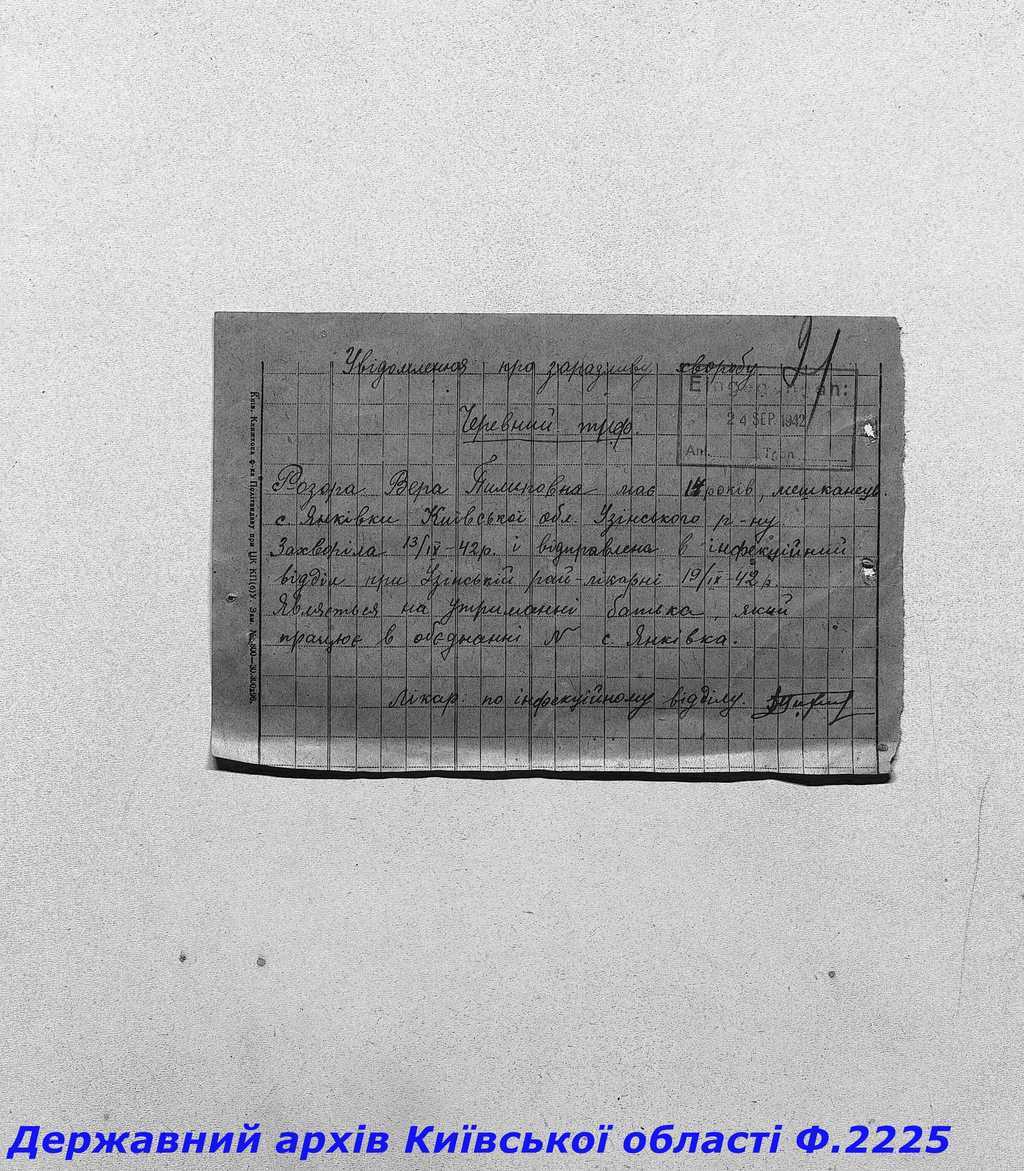 Увідомлення про заразливу хворобу
Eingegangen:
24 SEP. 1942
Черевний тиф.
Розора Вера Пилиповна має років, мешканець
с. Янківки Київської обл. Узінського р-ну.
Захворіла 13/IX-42р. і відправлена в інфекційний
відділ при Узінській рай-лікарні 19/IX-42р.
Являється на утриманні батька, який
працює в обєднанні № с. Янківка.
Лікар: по інфекційному відділу.
Державний архів Київської області Ф.2225